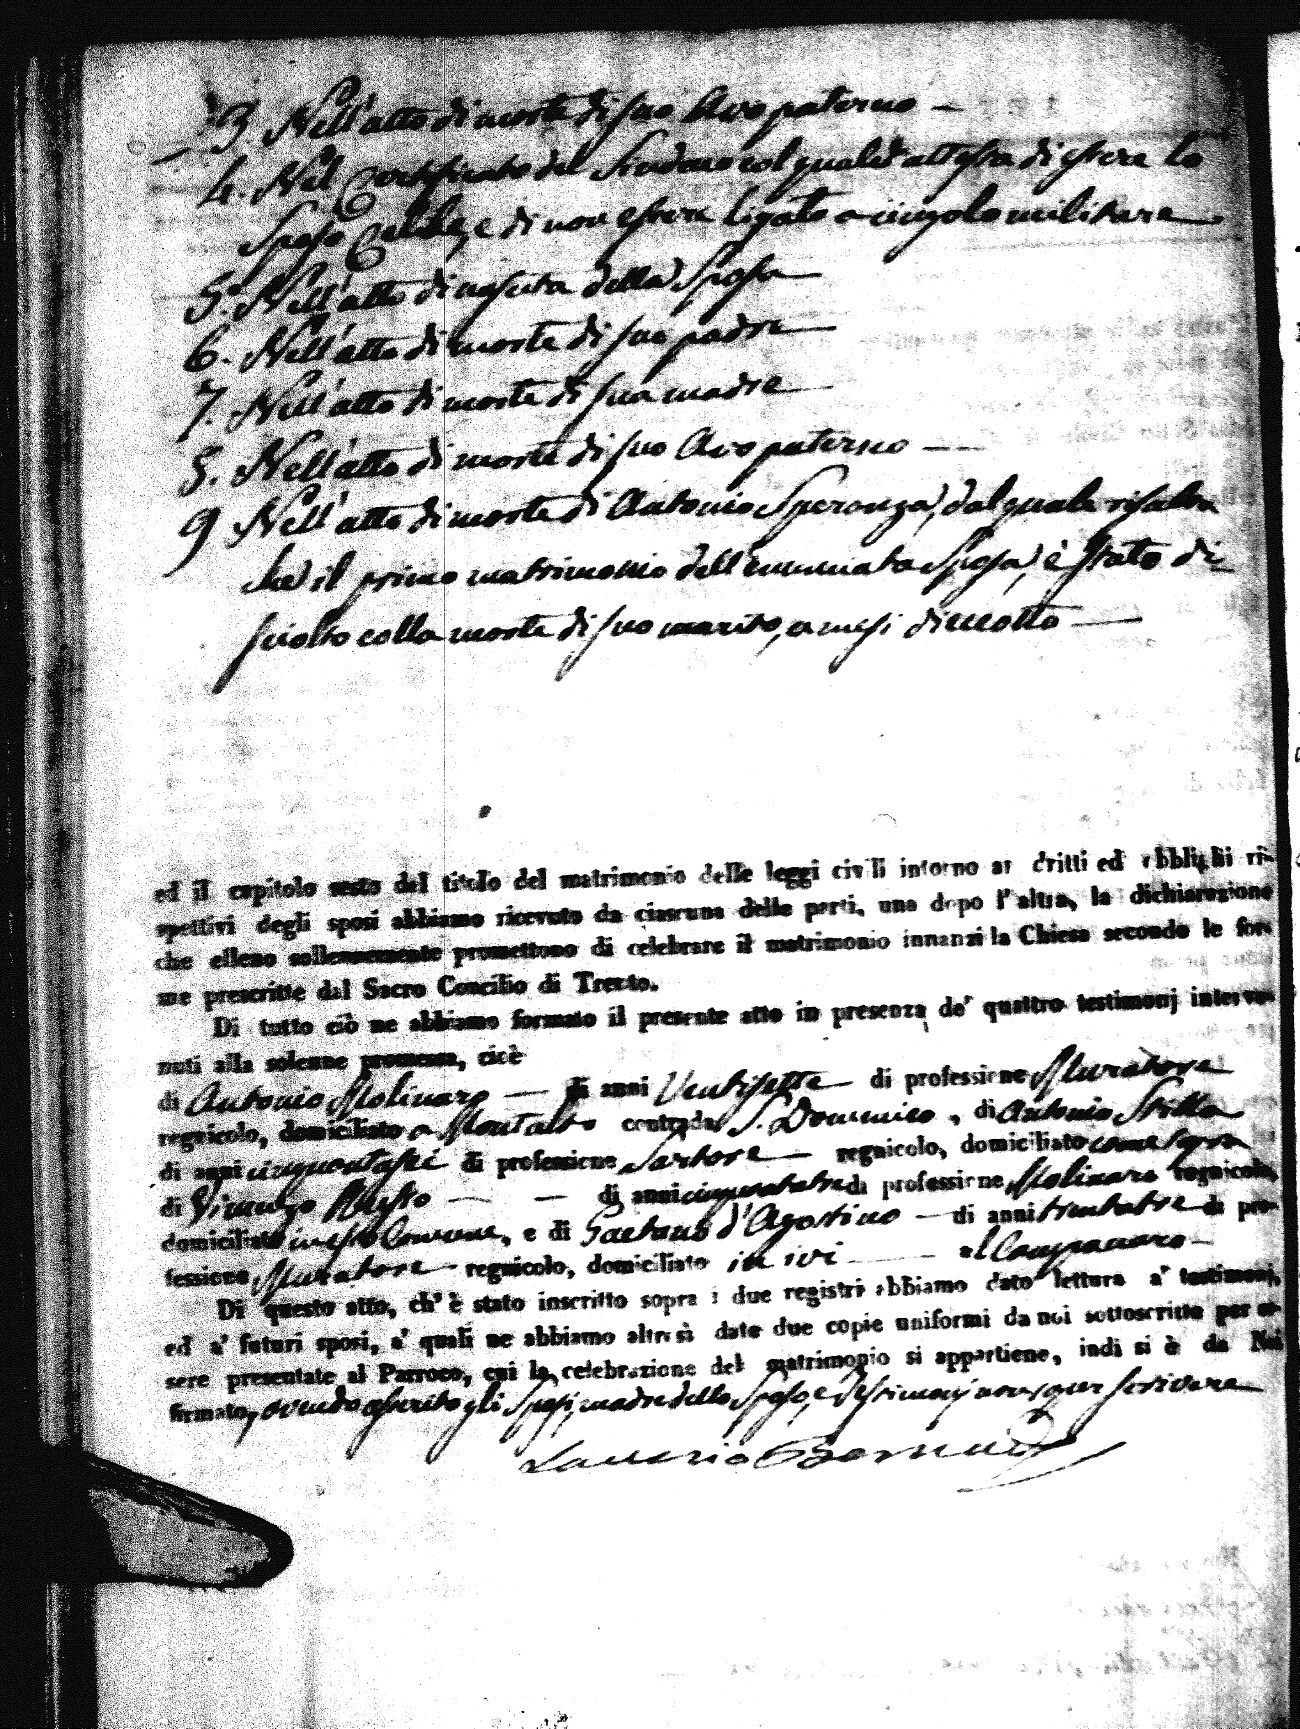 3. Nell'atto di morte di suo Avo paterno —
4. Nel Certificato del Sindaco col quale attesta di essere lo
Sposo Celibe, e di non essere ligato a cingolo militare
5. Nell'atto di nascita della Sposa
6. Nell'atto di morte di suo padre
7. Nell'atto di morte di sua madre
8. Nell'atto di morte di suo Avo paterno —
9 Nell'atto di morte di Antonio Speranza, dal quale risulta
che il primo matrimonio dell'enunciata Sposa, è stato di-
sciolto colla morte di suo marito, a mesi dieciotto —
ed il capitolo sesto del titolo del matrimonio delle leggi civili intorno ai dritti ed obblighi ri-
spettivi degli sposi abbiamo ricevuto da ciascuna delle parti, una dopo l'altra, la dichiarazione
che elleno sollennemente promettono di celebrare il matrimonio innanzi la Chiesa secondo le for-
me prescritte dal Sacro Concilio di Trento.
Di tutto ciò ne abbiamo formato il presente atto in presenza de' quattro testimonj interve-
nuti alla solenne promessa, cioè
di Antonio Molinaro — di anni Ventisette — di professione Muratore
regnicolo, domiciliato a Montalto contrada S. Domenico, di Antonio Stilla
di anni cinquantasei di professione Sartore — regnicolo, domiciliato come sopra
di Vincenzo Rusto — — di anni cinquantatre di professione Molinaro regnicolo,
domiciliato in esso Comune, e di Gaetano d'Agostino — di anni trentatre di pro-
fessione Muratore regnicolo, domiciliato in ivi — al Campanaro —
Di questo atto, ch' è stato inscritto sopra i due registri abbiamo dato lettura a' testimonj,
ed a' futuri sposi, a' quali ne abbiamo altresì date due copie uniformi da noi sottoscritte per es-
sere presentate al Parroco, cui la celebrazione del matrimonio si appartiene, indi si è da Noi
firmato, avendo asserito gli Sposi, madre dello Sposo, e Testimonj non saper scrivere